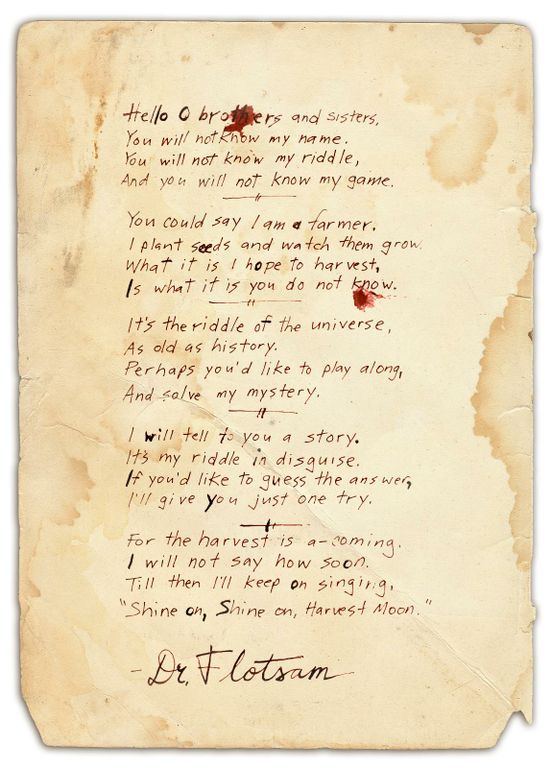 Hello O brothers and sisters,
You will not know my name.
You will not know my riddle,
And you will not know my game.
You could say I am a farmer.
I plant seeds and watch them grow.
What it is I hope to harvest,
Is what it is you do not know.
It's the riddle of the universe,
As old as history.
Perhaps you'd like to play along,
And solve my mystery.
I will tell to you a story.
It's my riddle in disguise.
If you'd like to guess the answer,
I'll give you just one try.
For the harvest is a-coming.
I will not say how soon.
Till then I'll keep on singing,
"Shine on, Shine on, Harvest Moon."
-Dr. Flotsam